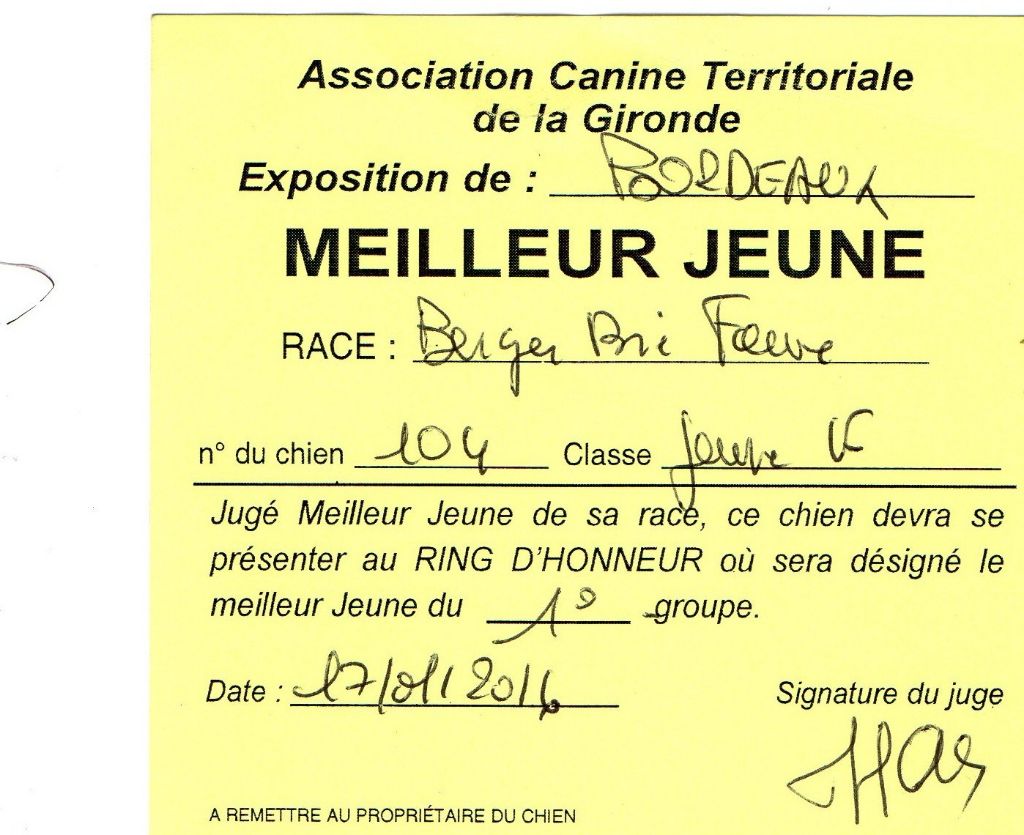 Association Canine Territoriale
de la Gironde
Exposition de : BORDEAUX
MEILLEUR JEUNE
RACE : Berger Brie Fauve
n° du chien 104 Classe jeune F
Jugé Meilleur Jeune de sa race, ce chien devra se
présenter au RING D'HONNEUR où sera désigné le
meilleur Jeune du 1° groupe.
Date : 17/01/2016
Signature du juge
A REMETTRE AU PROPRIÉTAIRE DU CHIEN